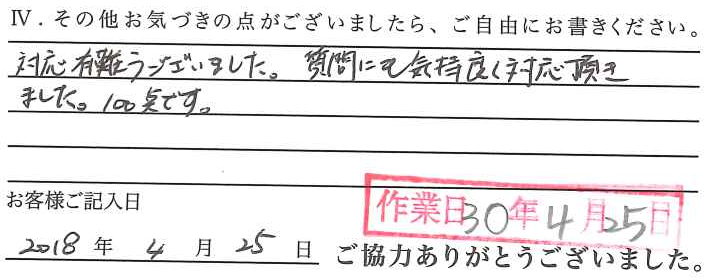 Ⅳ．その他お気づきの点がございましたら、ご自由にお書きください。
対応有難うございました。質問にも気持良く対応頂き
ました。100点です。
お客様ご記入日
作業日30年4月25日
2018年4月25日
ご協力ありがとうございました。